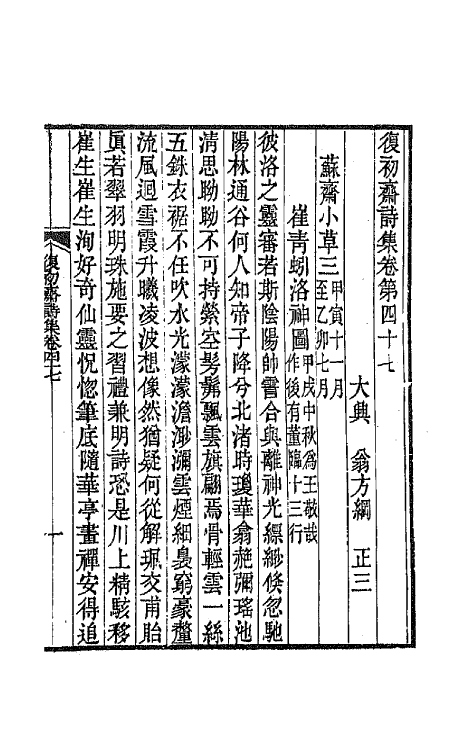 復初齋詩集卷第四十七
大典 翁方綱 正三
蘇齋小草三 甲寅十一月
至乙卯七月
崔青蚓洛神圖 甲戌中秋為王敬哉
作後有董臨十三行
彼洛之靈審若斯陰陽帥霅合與離神光縹緲倏忽馳
陽林通谷何人知帝子降兮北渚時瓊華翕赩彌瑤池
清思眑眑不可持縈空髣髴飄雲旗翩焉骨輕雲一絲
五銖衣裾不任吹水光濛濛澹渺瀰雲煙細裊窮豪釐
流風迴雪霞升曦凌波想像然猶疑何從解珮交甫貽
眞若翠羽明珠施要之習禮兼明詩恐是川上精駭移
崔生崔生洵好奇仙靈怳惚筆底隨華亭畫禪安得追
復初齋詩集卷四十七
一